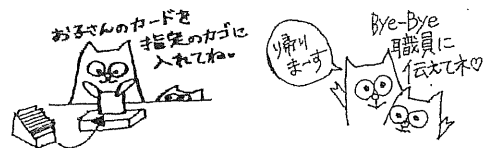 お子さんのカードを
指定のカゴに
入れてね♡
帰り
まーす
Bye-Bye
職員に
伝えてネ♡